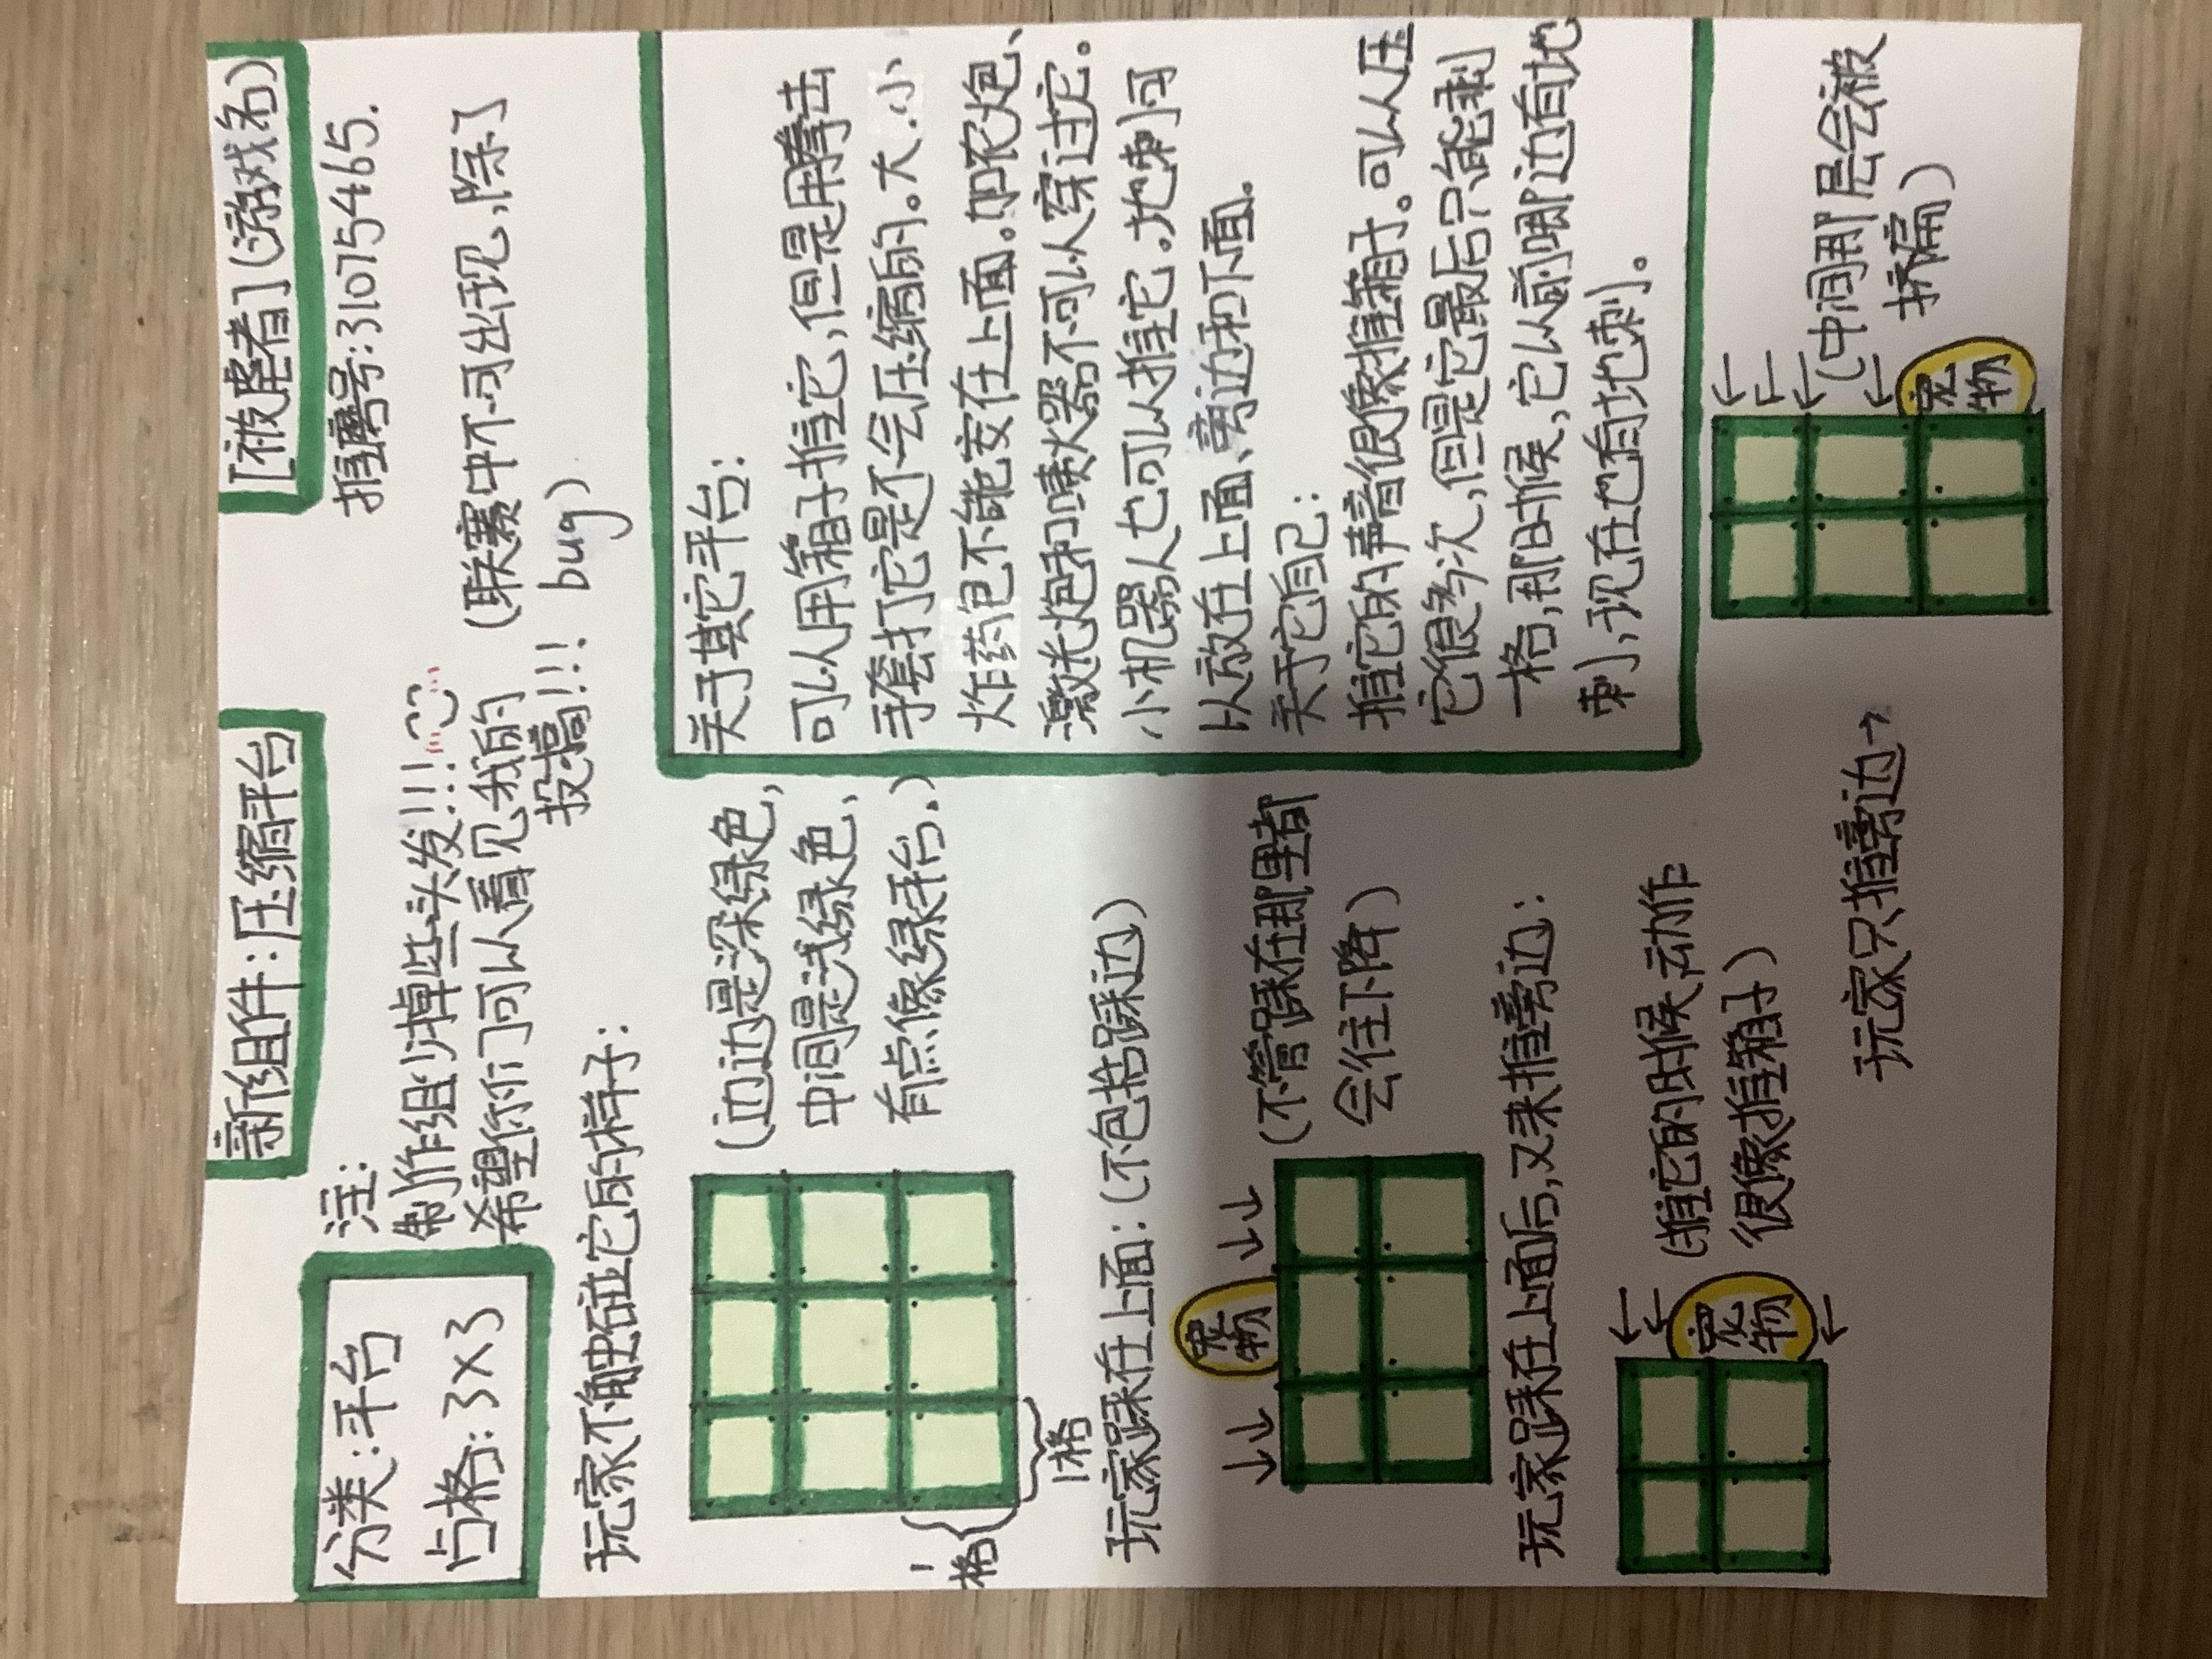 新组件：压缩平台
[被虐者](游戏名)
推磨号：31075465.
分类：平台
占格：3×3
注：
制作组少掉些头发!!!
希望你们可以看见我的
投搞!!!
(联赛中不可出现，除了
bug)
玩家不触碰它的样子：
(边边是深绿色，
中间是浅绿色，
有点像绿手台.)
1格
1格
玩家踩在上面：(不包括踩边)
宠物
(不管踩在那里都
会往下降)
玩家踩在上面后，又来推旁边：
宠物
(推它的时候，动作
很像推箱子)
玩家只推旁边→
宠物
(中间那层会被
挤扁)
关于其它平台：
可以用箱子推它，但是用拳击
手套打它是不会压缩的。大、小
炸药包不能安在上面。加农炮、
激光炮和喷火器不可以穿过它。
小机器人也可以推它。地刺可
以放在上面、旁边和下面。
关于它自己：
推它的声音很像推箱子。可以压
它很多次，但是它最后只能剩
一格，那时候，它以前哪边有地
刺，现在也有地刺。